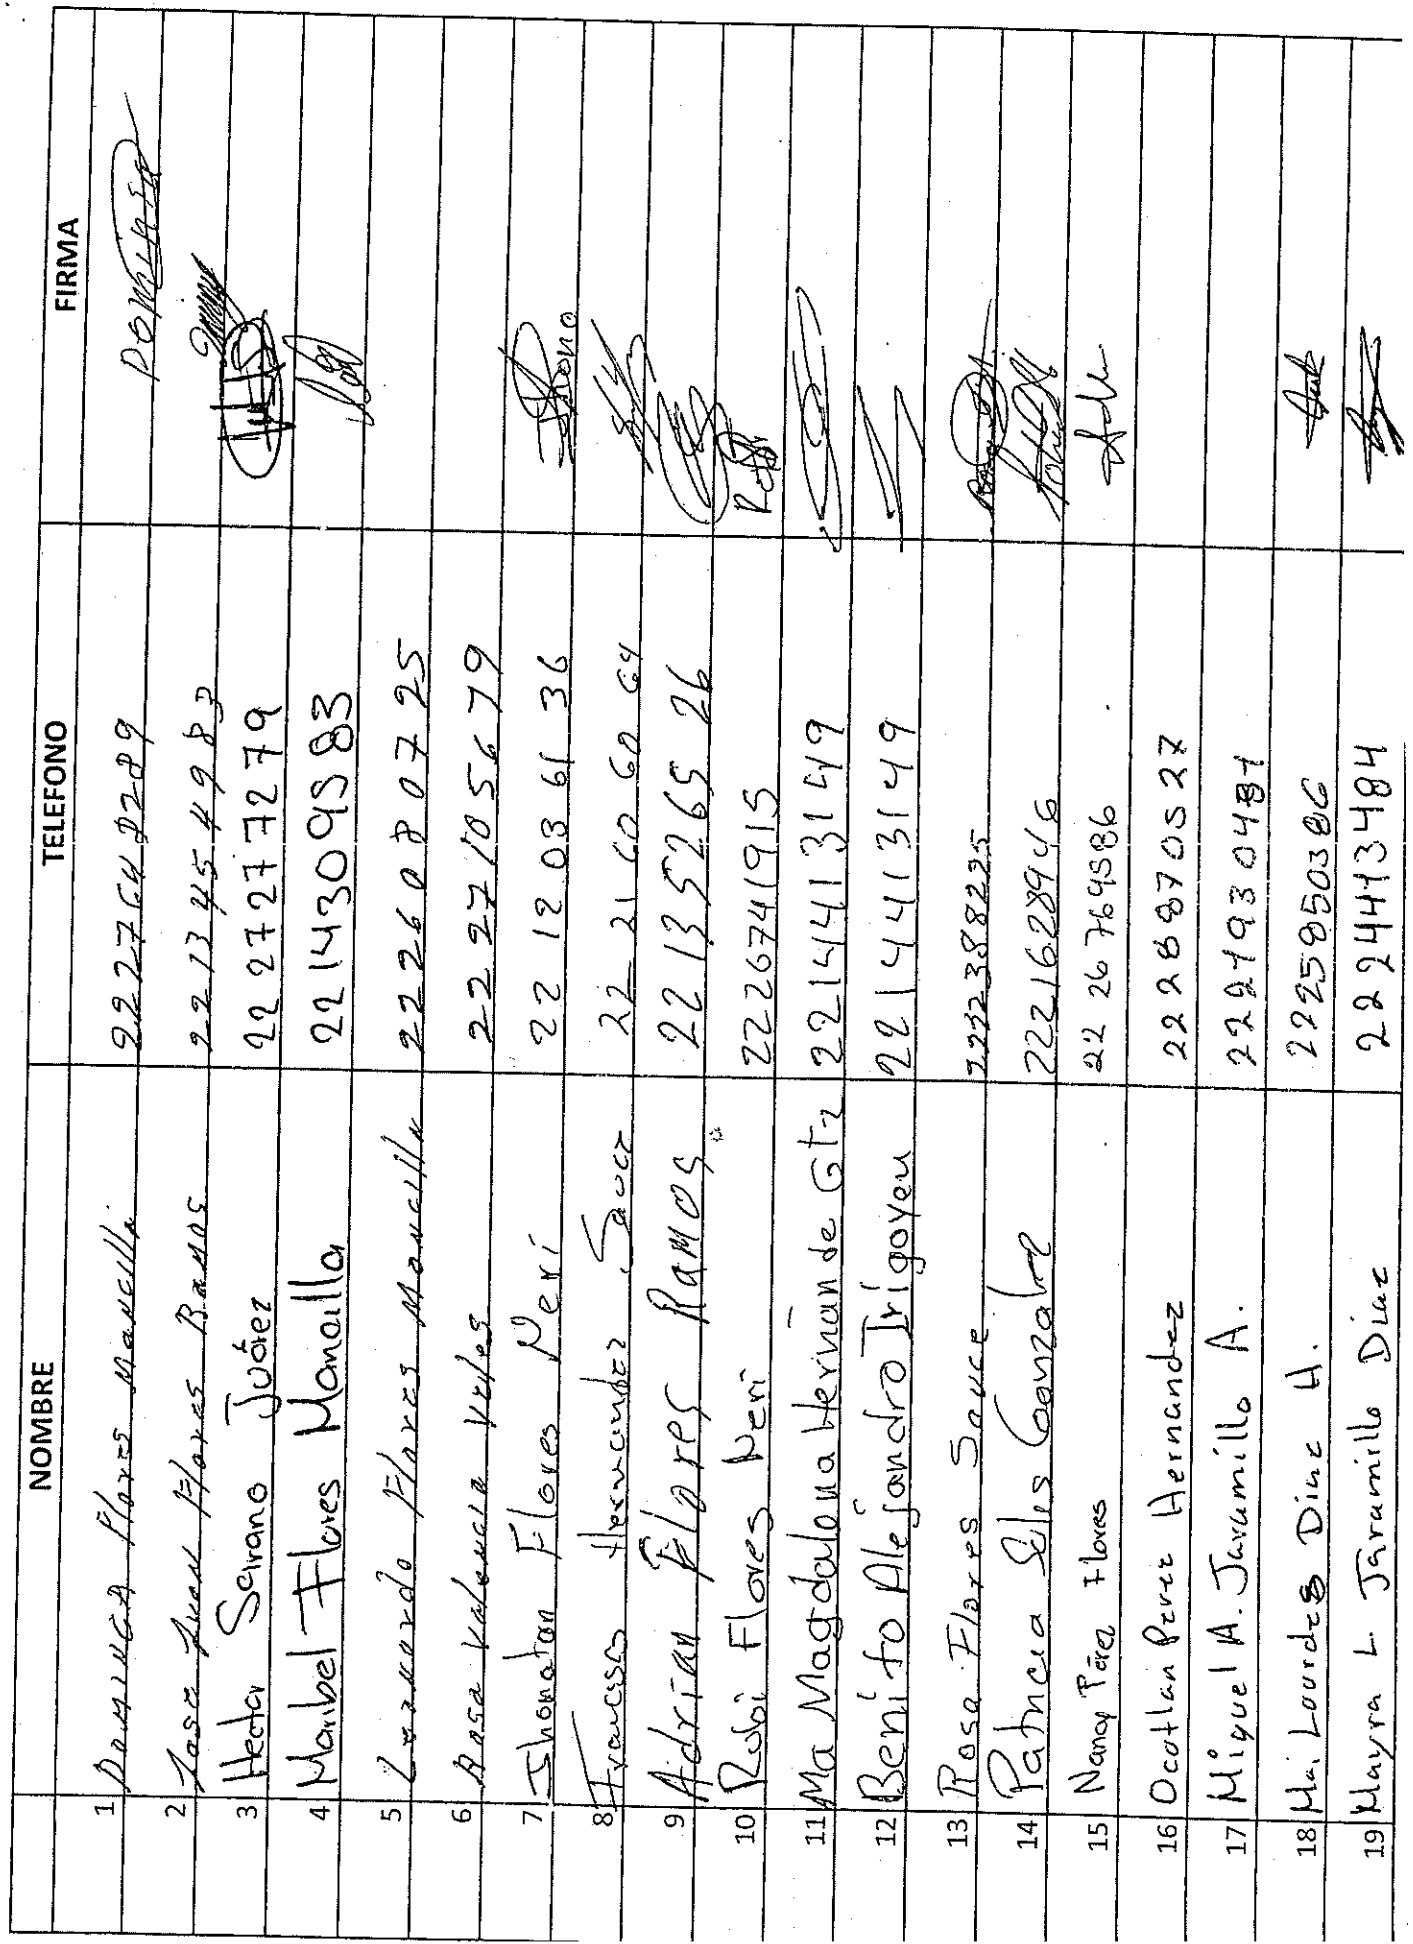 NOMBRE TELEFONO FIRMA
1 Dominga Flores Mancilla 2227648289
2 Jose Juan Flores Ramos 22 13 45 49 83
3 Hector Serrano Juárez 22 27277279
4 Maribel Flores Mancilla 22 14309583
5 Leonardo Flores Moncilla 22 2608 07 25
6 Rosa Valencia Veles 22 27 10 56 79
7 Jhonatan Flores Neri 22 12 03 61 36
8 Francisco Hernandez Sauce 22 21 60 60 64
9 Adrian Flores Ramos 22 13 5265 26
10 Rubi Flores Neri 2226741915
11 Ma Magdalena Hernande Gtz 2214413149
12 Benito Alejandro Irigoyen 2214413149
13 Rosa Flores Sauce 2232388225
14 Patricia Solis Gonzalez 2221628946
15 Nancy Pérez Flores 22 26 769586
16 Ocotlan Perez Hernandez 2228870527
17 Miguel A. Jaramillo A.
18 Ma. Lourdes Diaz H. 2225850386
19 Mayra L. Jaramillo Diaz 2224413484